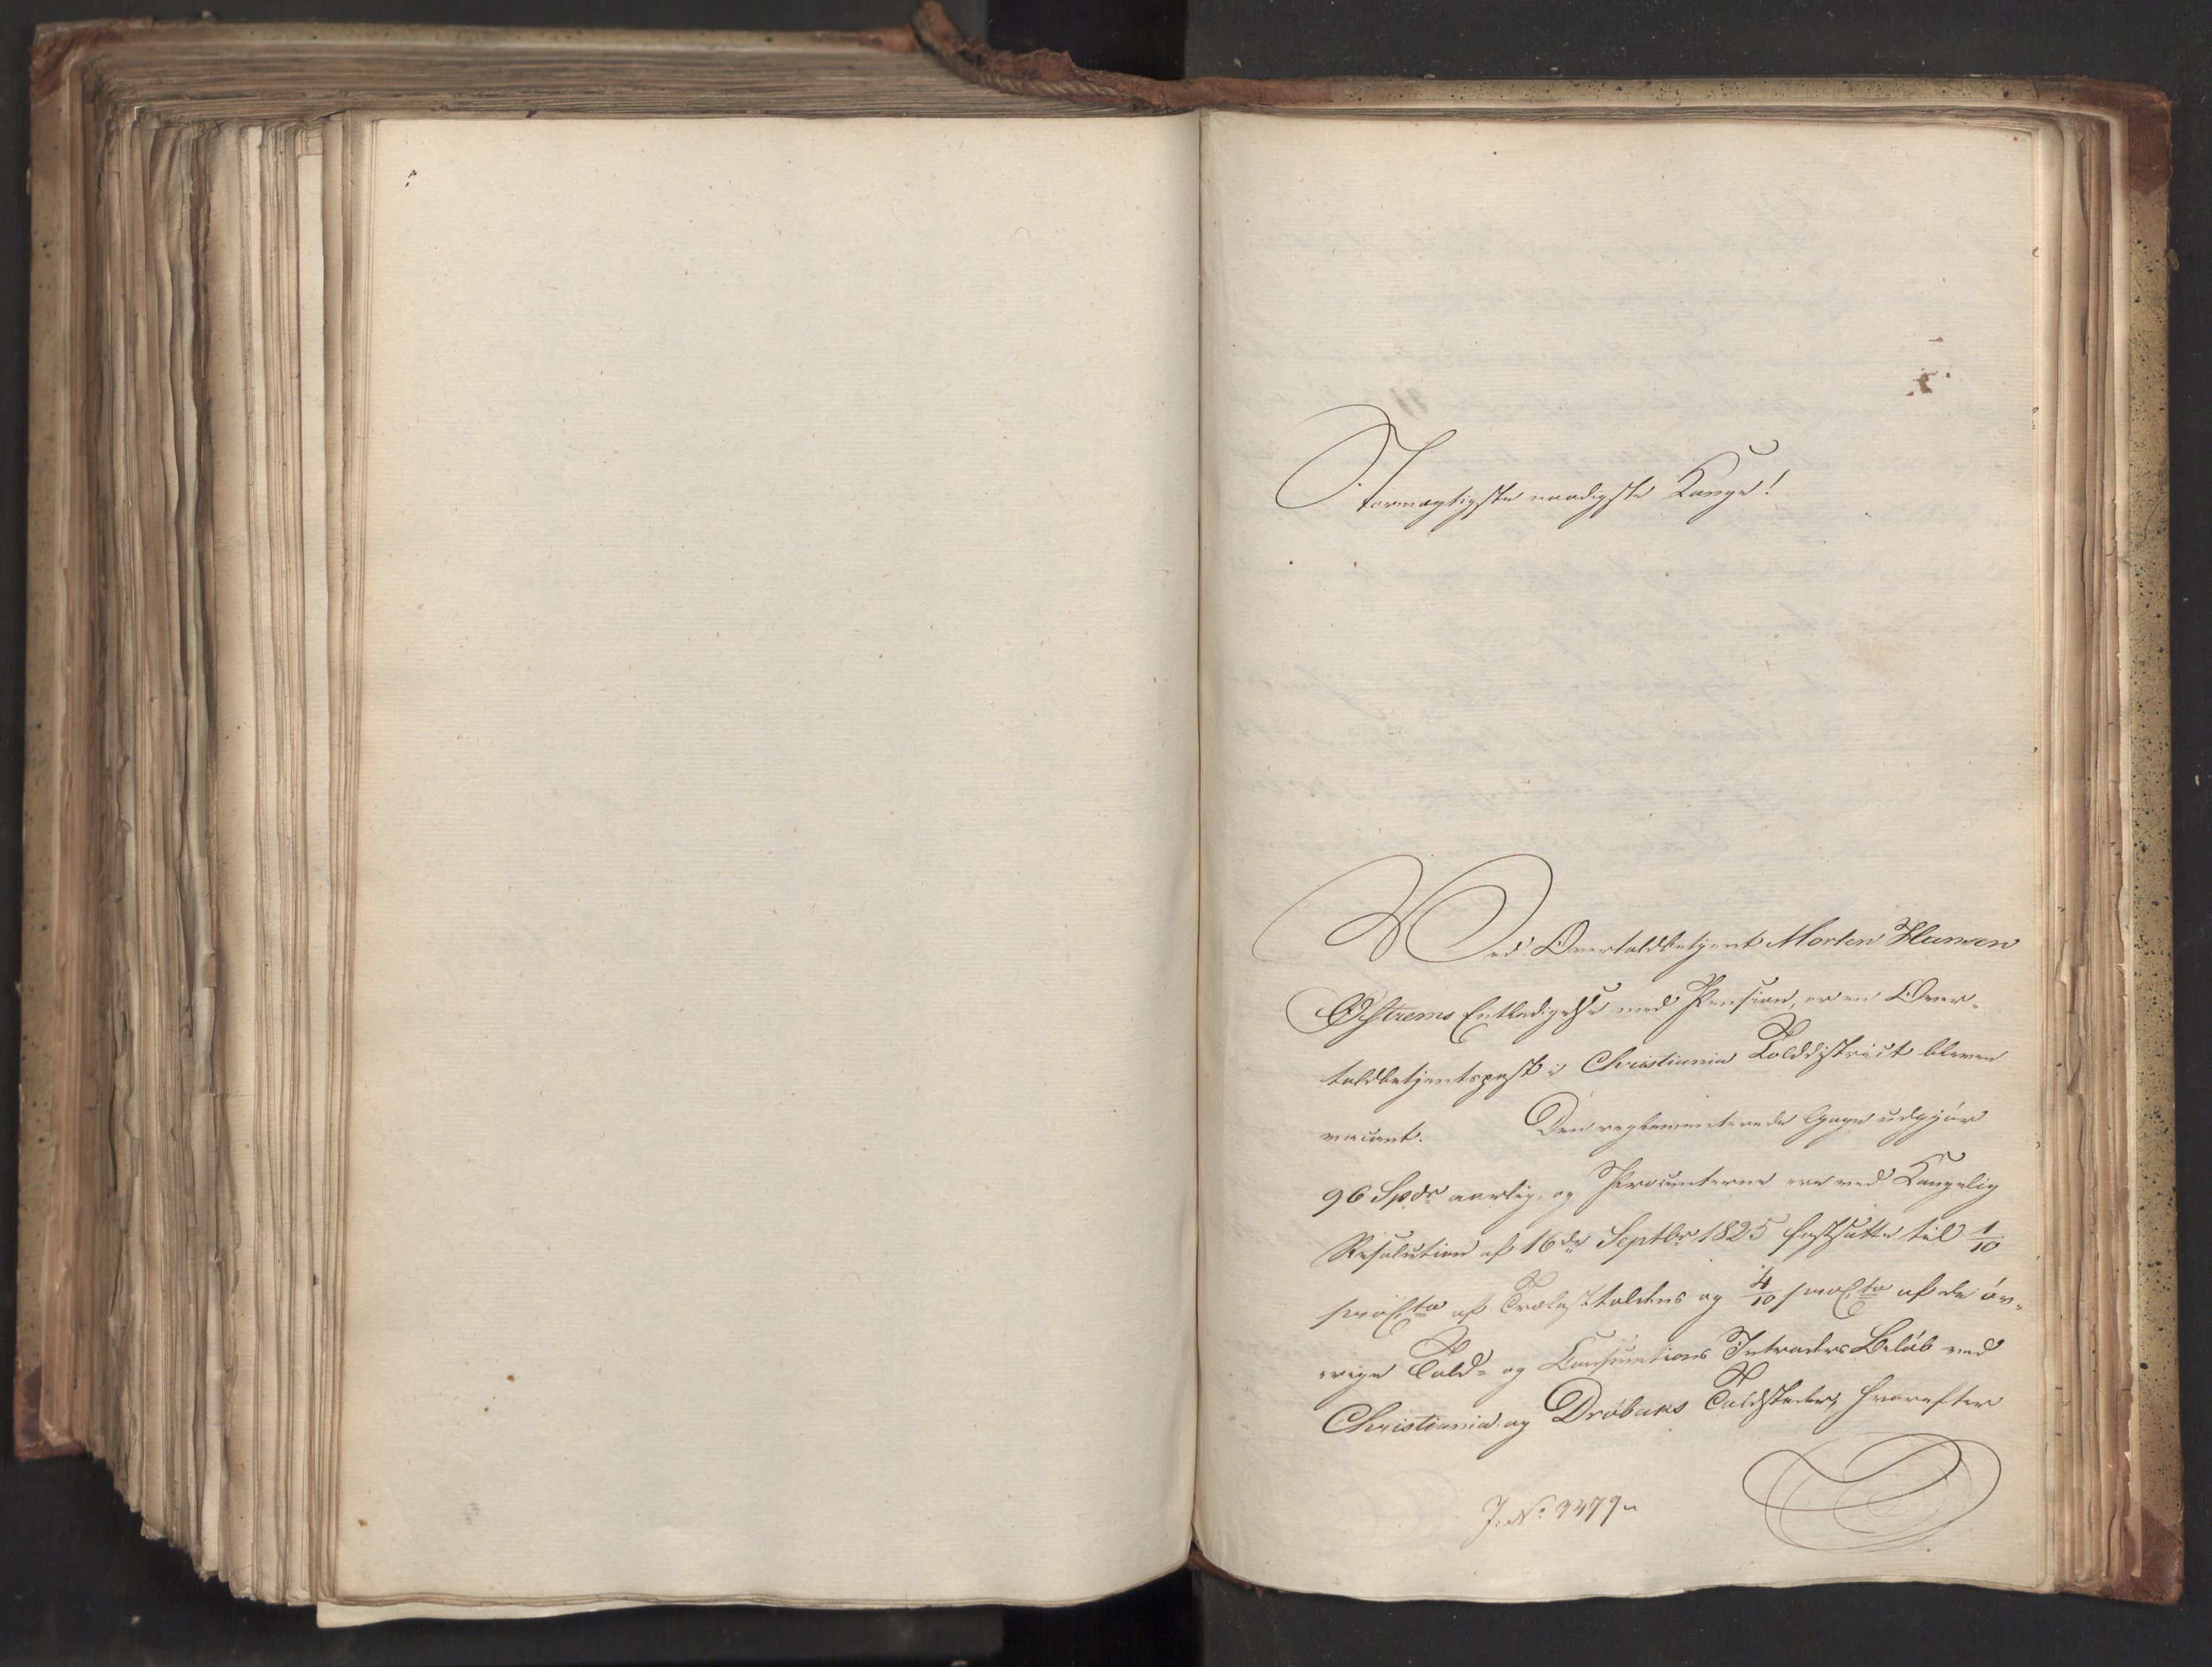 Stormægtigste naadigste Konge!
Ved Overtoldbetjent Morten Hansen
Østrems Entledigelse med Pension, er en Over-
toldbetjentspost i Christiania Tolddistrict bleven
vacant. Den reglementerede Gage udgjör
96 Spdr aarlig, og Procenterne ere ved Kongelig
Resolution af 16de Septbr 1825 fastsatte til 1/10
proCto af Trælasttoldens og 4/10 proCto af de öv-
rige Told- og Consumtions Intraders Belöb ved
Christiania og Dröbaks Toldsteder, hvorefter
J. No 3479